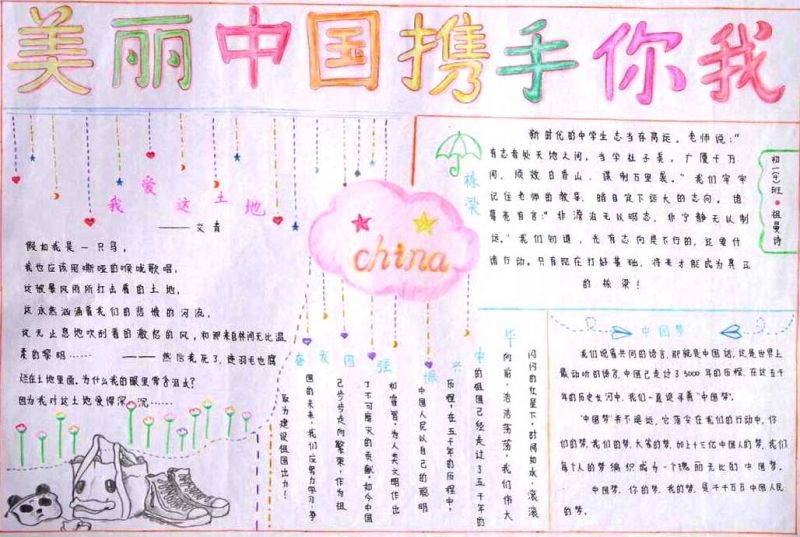 美丽中国携手你我
我爱这土地
——艾青
假如我是一只鸟,
我也应该用嘶哑的喉咙歌唱:
这被暴风雨所打击着的土地,
这永然汹涌着我们的悲愤的河流,
这无止息地吹刮着的激怒的风,和那来自林间无比温
柔的黎明……——然后我死了,连羽毛也腐
烂在土地里面。为什么我的眼里常含泪水?
因为我对这土地爱得深沉……
china
栋梁
新时代的中学生志当存高远。老师说:"
有志者处天地之间,当学杜子美,广厦千万
间,须效白香山,谋制万里裘。"我们牢牢
记住老师的教导,暗自定下远大的志向。诸
葛亮有言:"非澹泊无以明志,非宁静无以制
远。"我们知道,光有志向是不行的,还要付
诸行动。只有现在打好基础,将来才能成为真正
的栋梁!
初一班 祖曼诗
奋发图强 振兴中华
闪闪的红星下,时间如水,滚滚
向前,浩浩荡荡,我们伟大
的祖国已经走过了五千年的
历程,在五千年的历程中,
中国人民以自己的聪明
和智慧,为人类文明作出
了不可磨灭的贡献,如今中国
已步步走向繁荣,作为祖
国的未来,我们应努力学习,争
取为建设祖国出力!
中国梦
我们说着共同的语言,那就是中国话,这是世界上
最动听的语言,中国已走过了5000年的历程,在这五千
年的历史长河中,我们一直追寻着"中国梦"。
"中国梦"并不遥远,它落实在我们的行动中,你
们的梦,我们的梦,大家的梦,加上十三亿中国人的梦,我们
每个人的梦编织成为一个瑰丽无比的中国梦。
中国梦,你的梦,我的梦,是千千万万中国人民
的梦。